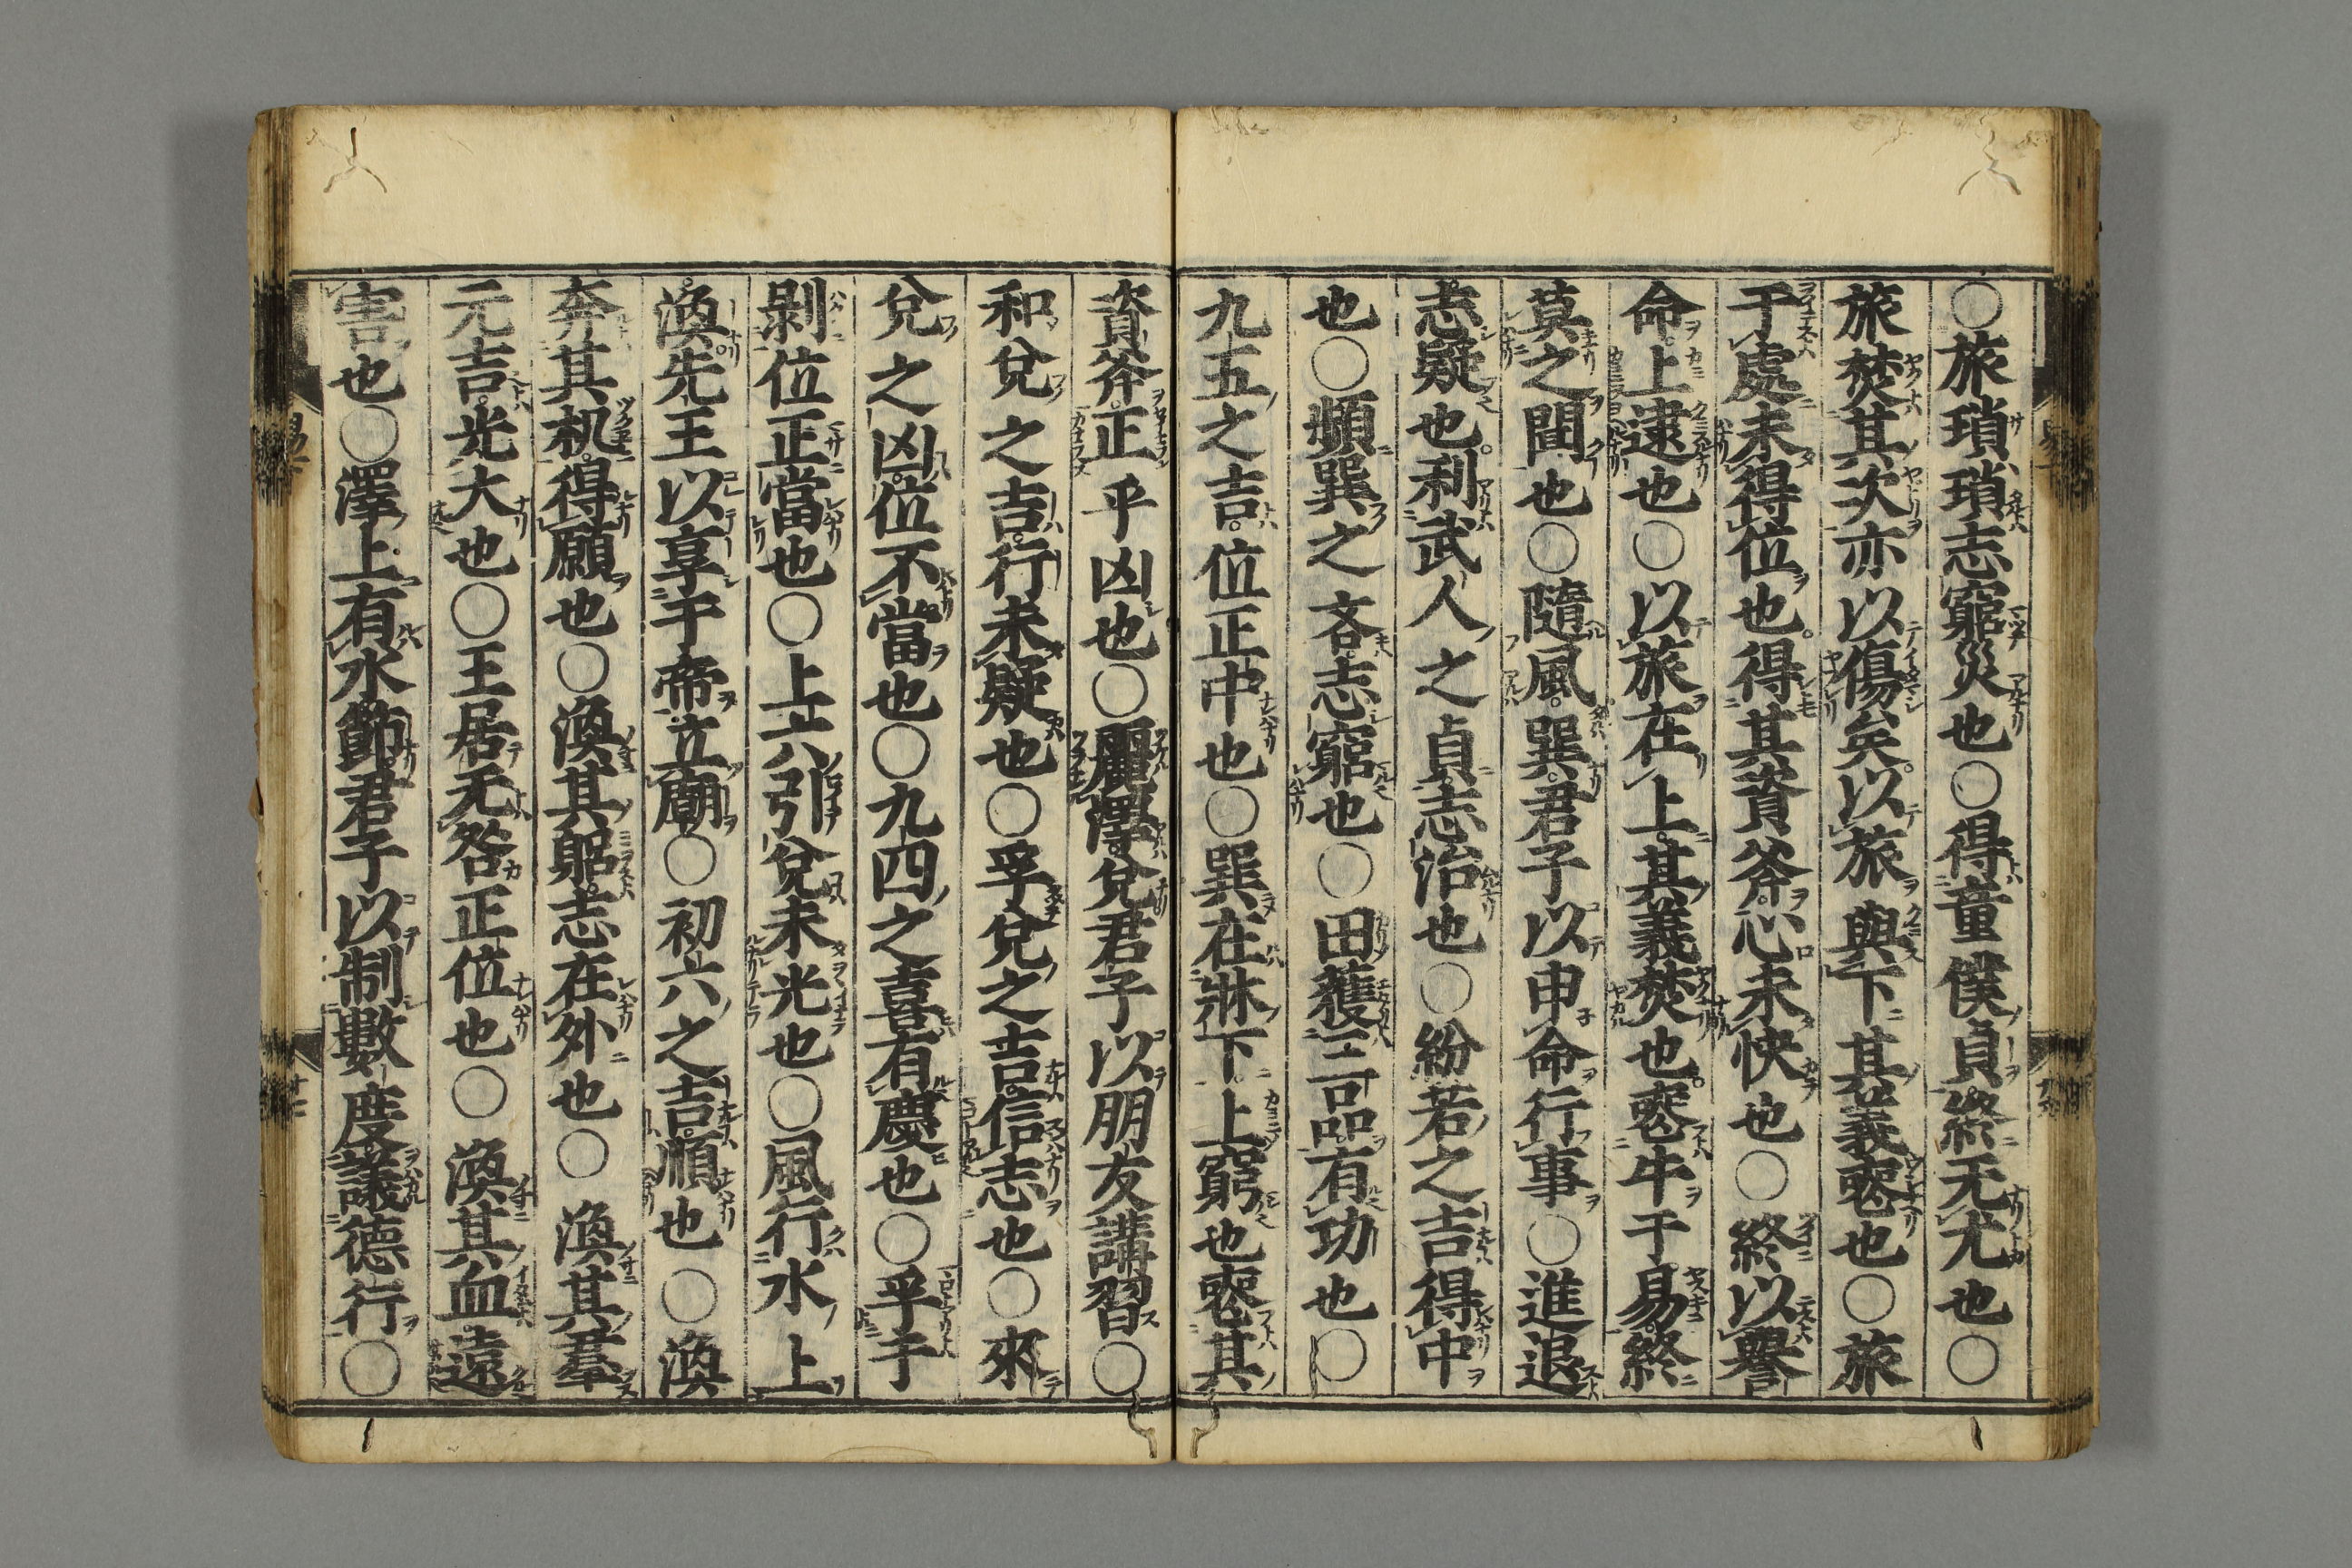 ○旅瑣瑣志窮災也○得童僕負終无尤也○
旅焚其次亦以傷矣以旅與下其義喪也○旅
于處未得位也得其資斧心未快也○終以譽
命上逮也○以旅在上其義焚也喪牛于易終
莫之聞也○隨風巽君子以申命行事○進退
志疑也利武人之貞志治也○紛若之吉得中
也○頻巽之吝志窮也○田獲三品有功也○
九五之吉位正中也○巽在牀下上窮也喪其
資斧正乎凶也○麗澤兌君子以朋友講習○
和兌之吉行未疑也○孚兌之吉信志也○來
兌之凶位不當也○九四之喜有慶也○孚于
剥位正當也○上六引兌未光也○風行水上
渙先王以享于帝立廟○初六之吉順也○渙
奔其机得願也○渙其躬志在外也○渙其羣
元吉光大也○王居无咎正位也○渙其血遠
害也○澤上有水節君子以制數度議德行○